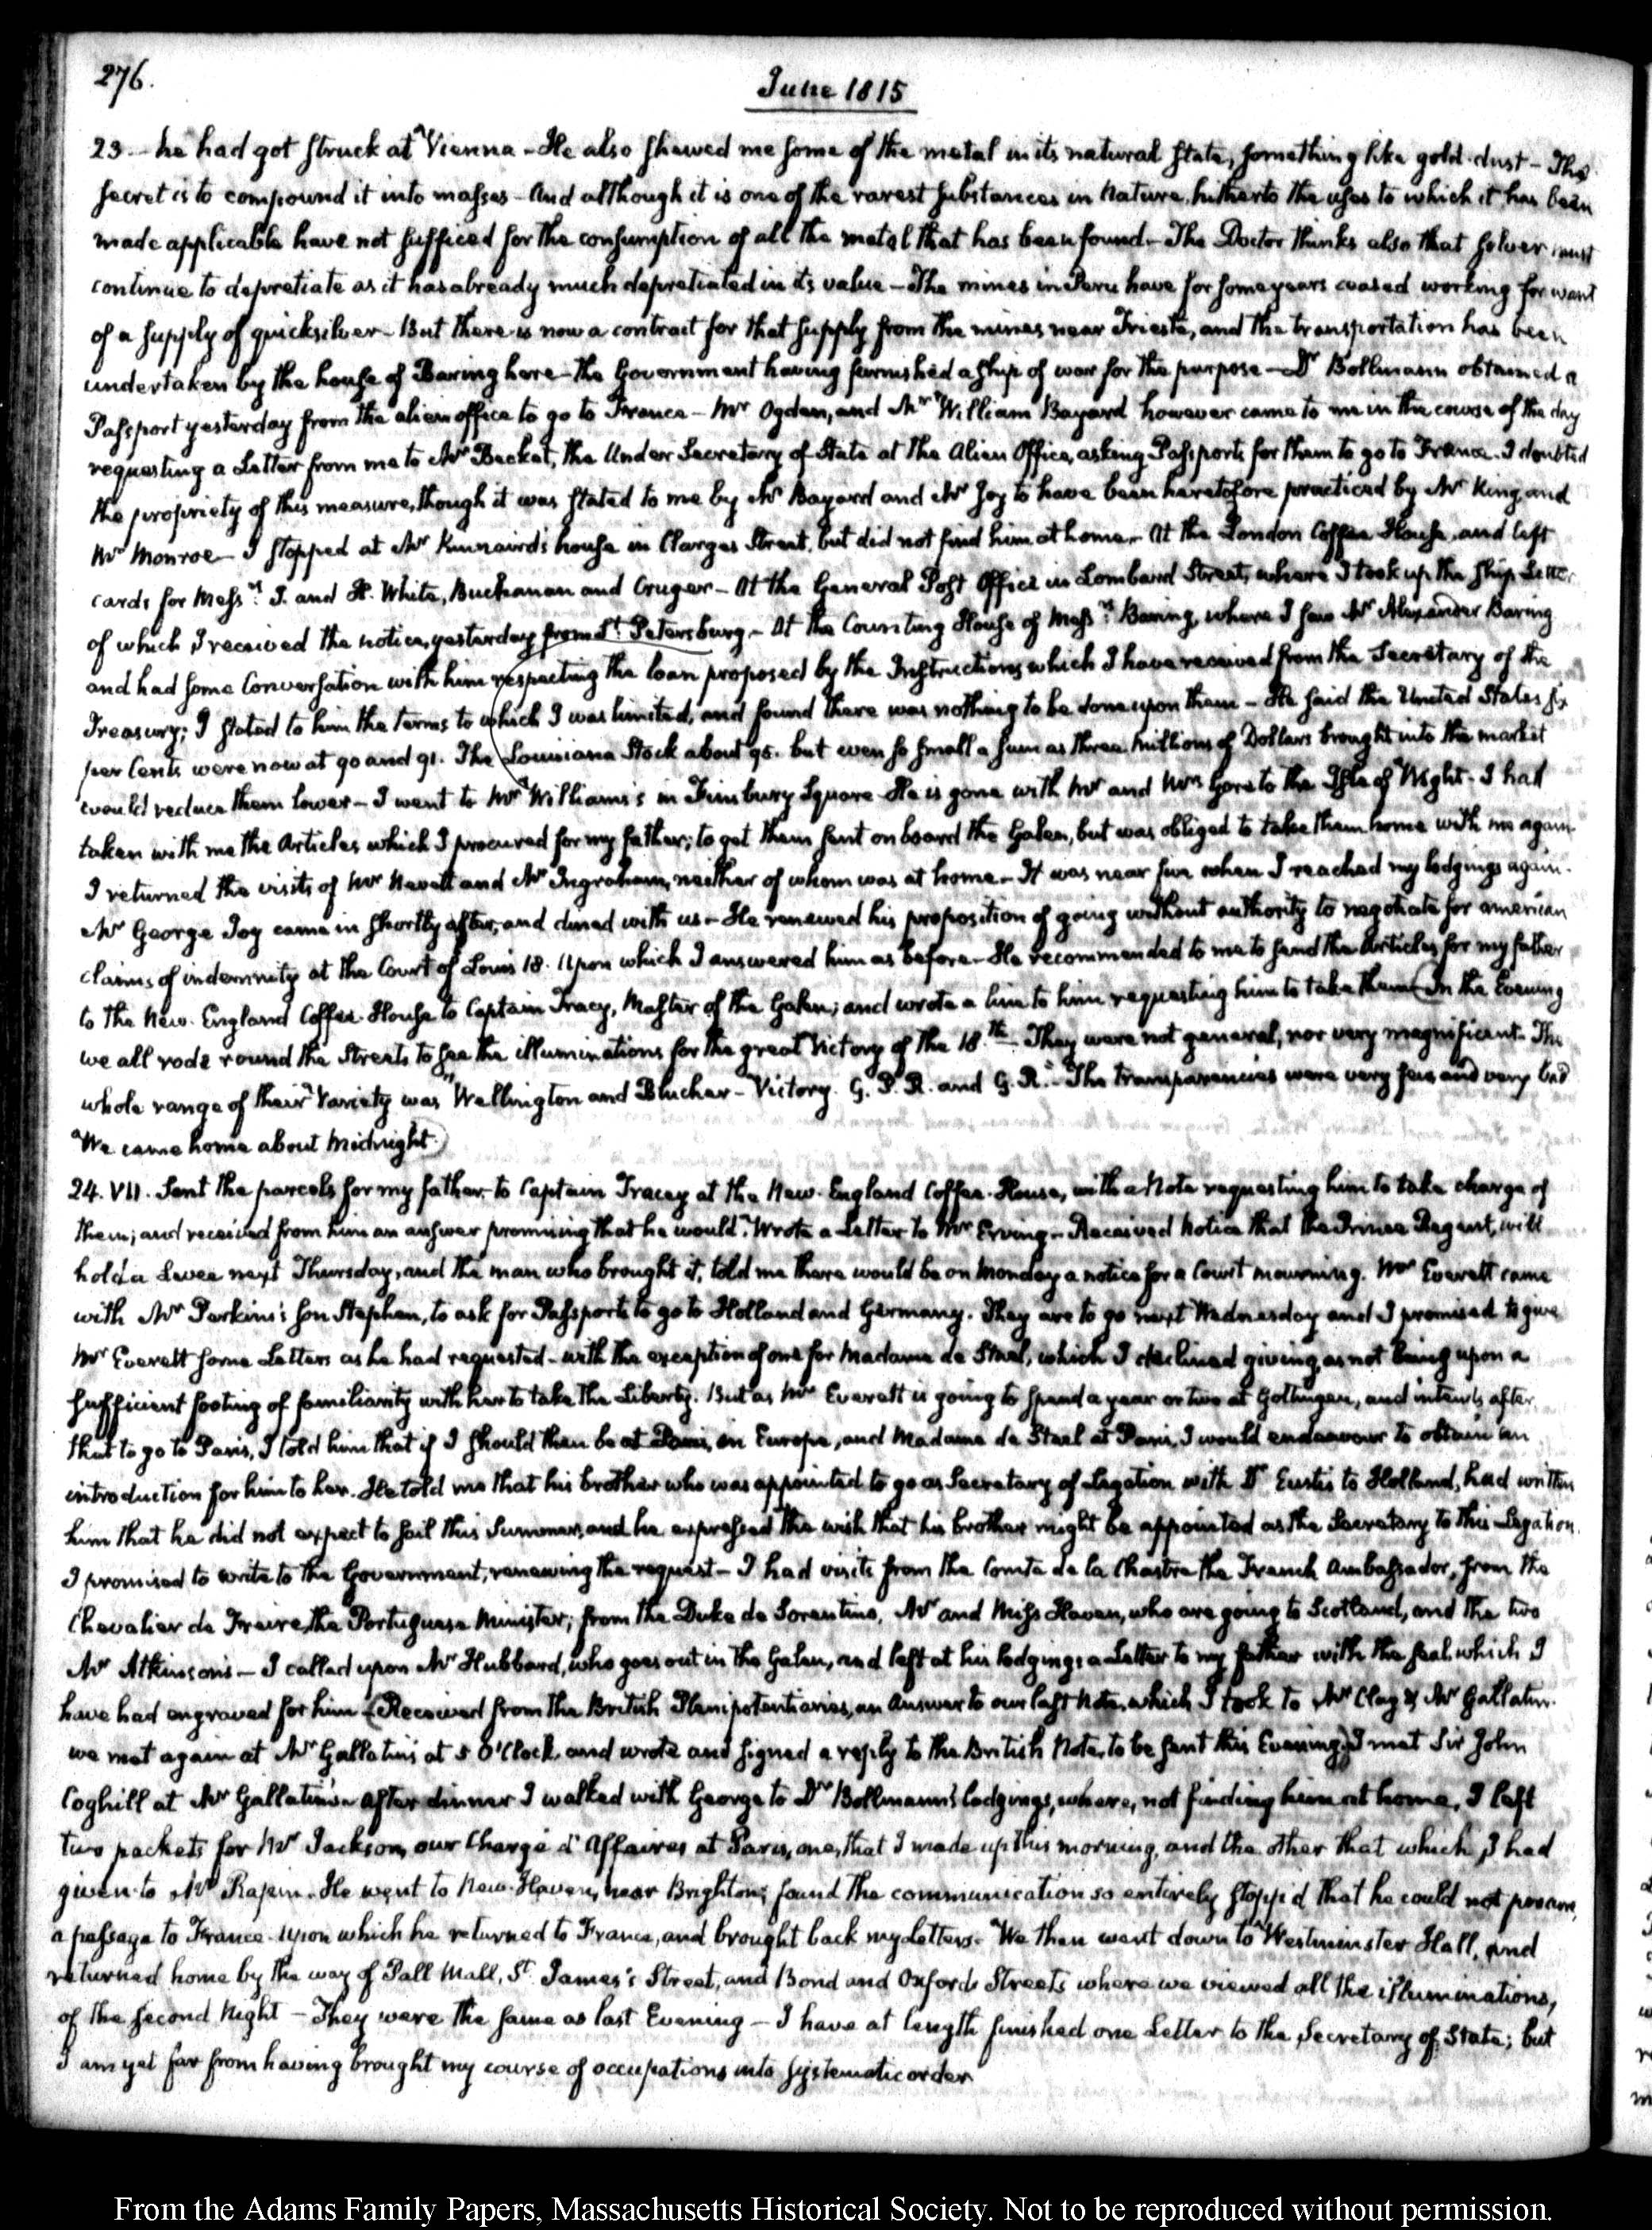 276.
June 1815
23 - he had got struck at Vienna - He also shewed me some of the metal in its natural state, something like gold-dust - The
secret is to compound it into masses - And although it is one of the rarest substances in Nature, hitherto the uses to which it has been
made applicable have not sufficed for the consumption of all the metal that has been found - The Doctor thinks also that silver must
continue to depretiate as it has already much depretiated in its value - The mines in Peru have for some years ceased working for want
of a supply of quicksilver - But there is now a contract for that supply from the mines near Trieste, and the transportation has been
undertaken by the house of Baring here - the Government having furnished a ship of war for the purpose - Dr Bollmann obtained a
Passport yesterday from the alien office to go to France - Mr Ogden, and Mr William Bayard however came to me in the course of the day
requesting a Letter from me to Mr Becket, the Under Secretary of State at the Alien Office, asking Passports for them to go to France. I doubted
the propriety of this measure, though it was stated to me by Mr Bayard and Mr Joy to have been heretofore practiced by Mr King, and
Mr Monroe - I stopped at Mr Kinnaird's house in Clarges Street, but did not find him at home. - At the London Coffee House, and left
cards for Messrs. J. and H. White, Buchanan and Cruger - At the General Post Office in Lombard Street, where I took up the ship Letter
of which I received the notice, yesterday from St. Petersburg. - At the Counting House of Messrs. Baring, where I saw Mr Alexander Baring
and had some Conversation with him respecting the loan proposed by the Instructions which I have received from the Secretary of the
Treasury; I stated to him the terms to which I was limited, and found there was nothing to be done upon them - He said the United States six
per Cents were now at 90 and 91. The Louisiana Stock about 95. but even so small a sum as three millions of Dollars brought into the market
would reduce them lower - I went to Mr Williams's in Finsbury Square - He is gone with Mr and Mrs Gore to the Isle of Wight. I had
taken with me the Articles which I procured for my father; to get them sent on board the Galen, but was obliged to take them home with me again.
I returned the visits of Mr Nevett and Mr Ingraham, neither of whom was at home - It was near five when I reached my lodgings again.
Mr George Joy came in shortly after, and dined with us - He renewed his proposition of going without authority to negotiate for american
claims of indemnity at the Court of Louis 18. Upon which I answered him as before - He recommended to me to send the Articles for my father
to the New-England Coffee-House to Captain Tracy, Master of the Galen; and wrote a line to him requesting him to take them (In the Evening
we all rode round the Streets to see the illuminations for the great Victory of the 18.th - They were not general, nor very magnificent. The
whole range of their variety was "Wellington and Blucher - Victory. G. P. R. and G. R." - The transparencies were very few and very bad
We came home about Midnight.)
24. VII. Sent the parcels for my father to Captain Tracey at the New-England Coffee-House, with a Note requesting him to take charge of
them; and received from him an answer promising that he would. Wrote a Letter to Mr Erving - Received Notice that the Prince Regent, will
hold a Levee next Thursday, and the man who brought it, told me there would be on Monday a notice for a Court mourning. Mr Everett came
with Mr Perkins's son Stephen, to ask for Passports to go to Holland and Germany. They are to go next Wednesday and I promised to give
Mr Everett some Letters as he had requested - with the exception of one for Madame de Stael, which I declined giving, as not being upon a
sufficient footing of familiarity with her to take the Liberty. But as Mr Everett is going to spend a year or two at Gottingen, and intends after
that to go to Paris, I told him that if I should then be at Paris, in Europe, and Madame de Stael at Paris, I would endeavour to obtain an
introduction for him to her. He told me that his brother who was appointed to go as Secretary of Legation with Dr Eustis to Holland, had written
him that he did not expect to sail this Summer, and he expressed the wish that his brother might be appointed as the Secretary to this Legation.
I promised to write to the Government, renewing the request - I had visits from the Comte de la Chastre the French Ambassador, from the
Chevalier de Freire, the Portuguese Minister; from the Duke de Sorentino, Mr and Miss Haven, who are going to Scotland, and the two
Mr Atkinsons - I called upon Mr Hubbard, who goes out in the Galen, and left at his lodgings a Letter to my father with the seal which I
have had engraved for him (Received from the British Plenipotentiaries, an Answer to our last Note, which I took to Mr Clay & Mr Gallatin.
we met again at Mr Gallatin's at 5 O'Clock, and wrote and signed a reply to the British Note, to be sent this Evening) I met Sir John
Coghill at Mr Gallatin's After dinner I walked with George to Dr Bollmann's lodgings, where, not finding him at home, I left
two packets for Mr Jackson, our Chargé d'Affaires at Paris, one, that I made up this morning, and the other that which I had
given to Mr Rapin. He went to New-Haven, near Brighton; found the communication so entirely stopp'd that he could not procure
a passage to France. Upon which he returned to France, and brought back my Letters. We then went down to Westminster Hall, and
returned home by the way of Pall Mall, St. James's Street, and Bond and Oxford Streets where we viewed all the illuminations,
of the second Night - They were the same as last Evening - I have at length finished one Letter to the Secretary of State; but
I am yet far from having brought my course of occupations into systematic order
From the Adams Family Papers, Massachusetts Historical Society. Not to be reproduced without permission.